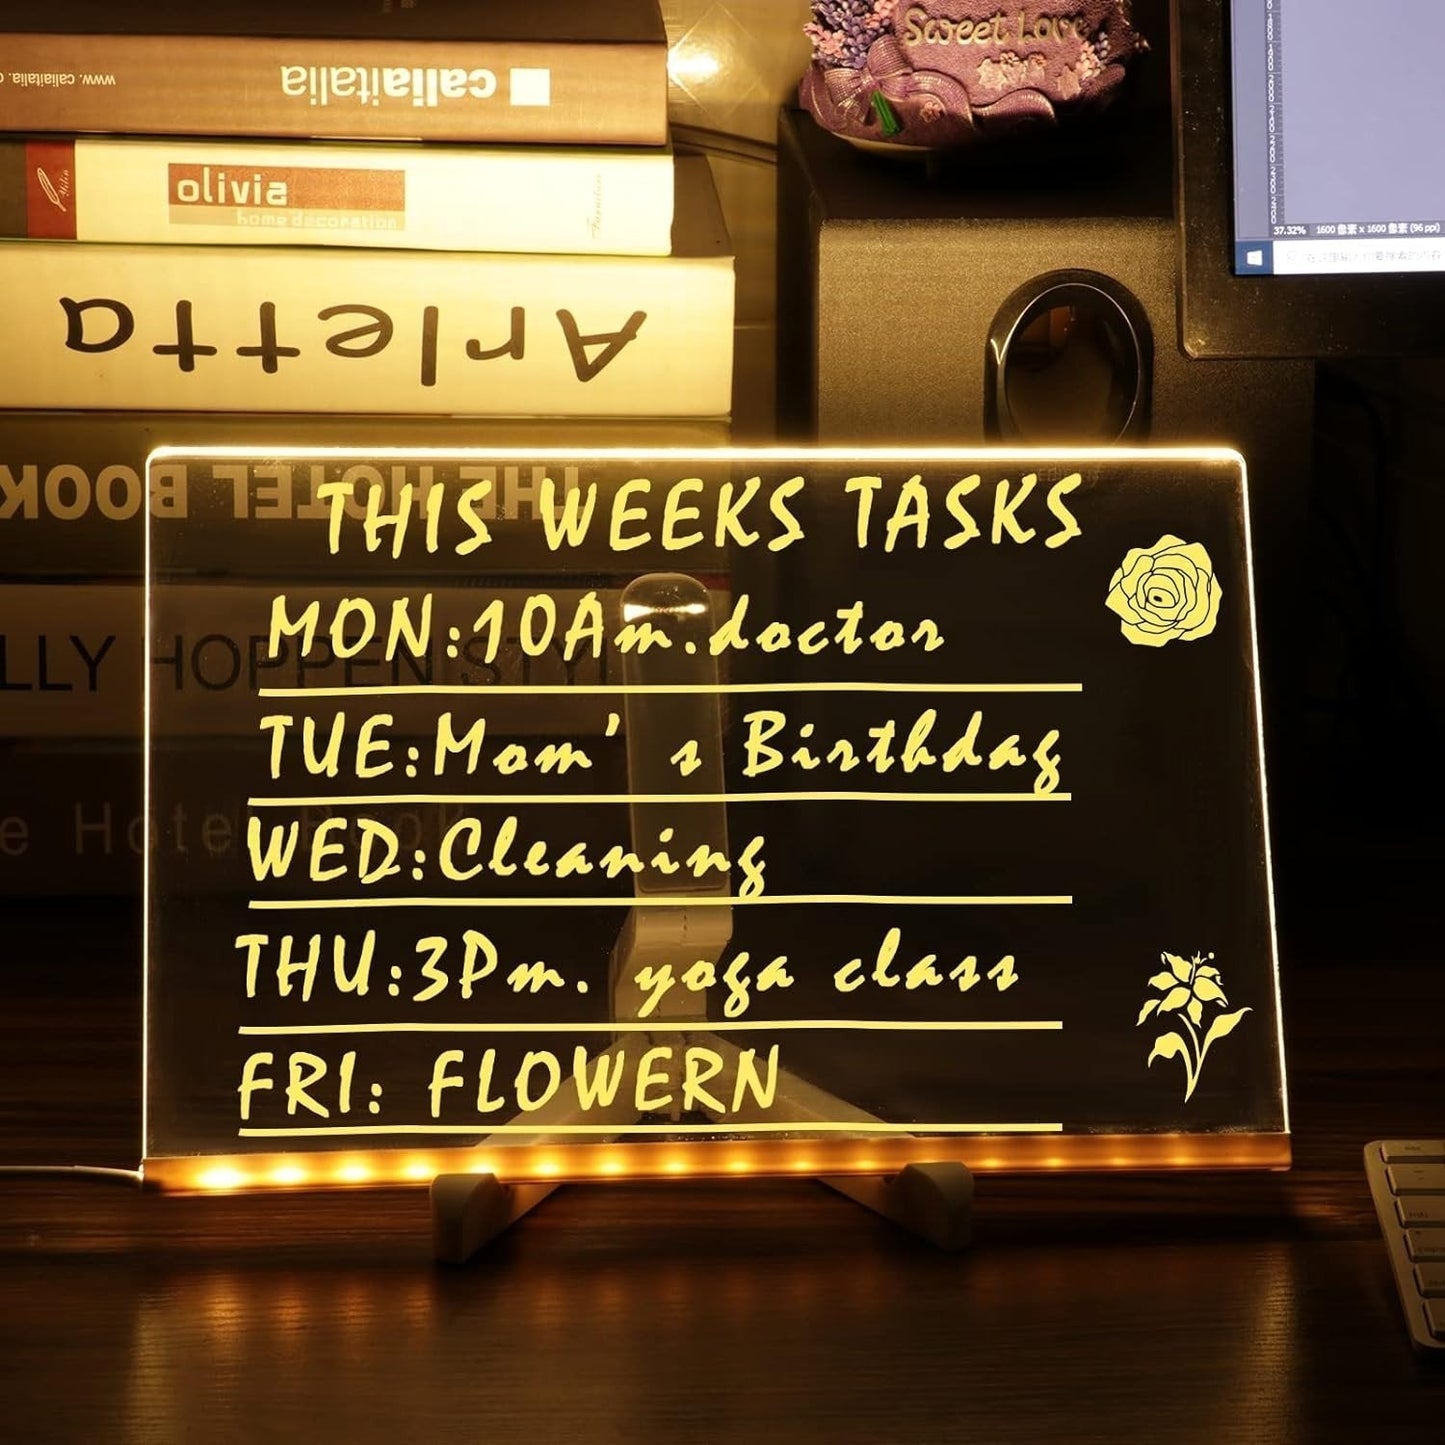 www. caliaitalia. c
caliaitalia
olivia
home decoration
Furniture
Arletta
THE HOTEL BOOK
LLY HOPPEN STYL
e Hotel Book
Sweet Love
37.32% 1600 像素 x 1600 像素 (96 ppi)
在这里输入你要搜索的内容
THIS WEEKS TASKS
MON:10Am.doctor
TUE:Mom’ s Birthday
WED:Cleaning
THU:3Pm. yoga class
FRI: FLOWERN